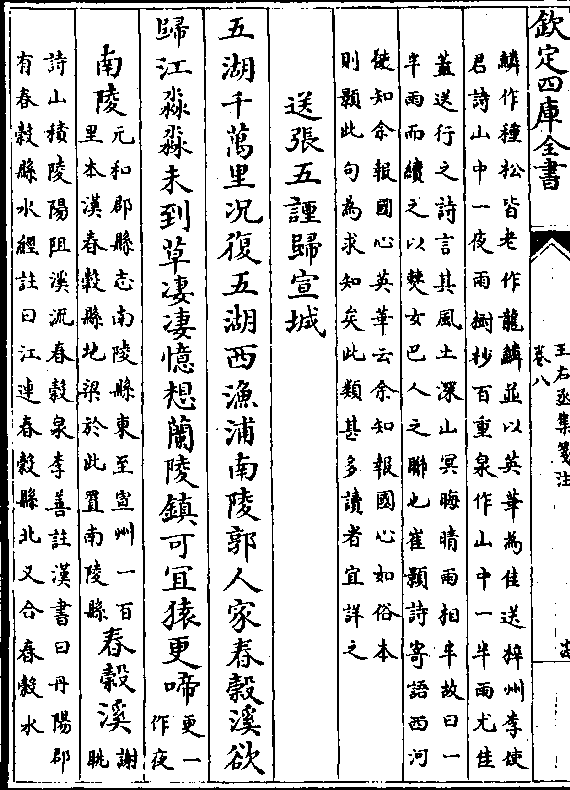 欽定四庫全書
王右丞集箋注
卷八
鱗作種松皆老作龍鱗並以英華為佳送梓州李使
君詩山中一夜雨樹杪百重泉作山中一半雨尤佳
蓋送行之詩言其風土深山冥晦晴雨相半故曰一
半雨而續之以雙女巴人之聯也崔顥詩寄語西河
使知余報國心英華云余知報國心如俗本
則顥此句為求知矣此類甚多讀者宜詳之
送張五諲歸宣城
五湖千萬里况復五湖西漁浦南陵郭人家春穀溪欲
歸江淼淼未到草凄凄憶想蘭陵鎮可宜猿更啼更一作夜
南陵元和郡縣志南陵縣東至宣州一百里本漢春穀縣地梁於此置南陵縣春穀溪謝朓
詩山積陵陽阻溪流春穀泉李善註漢書曰丹陽郡
有春穀縣水經註曰江連春穀縣北又合春穀水